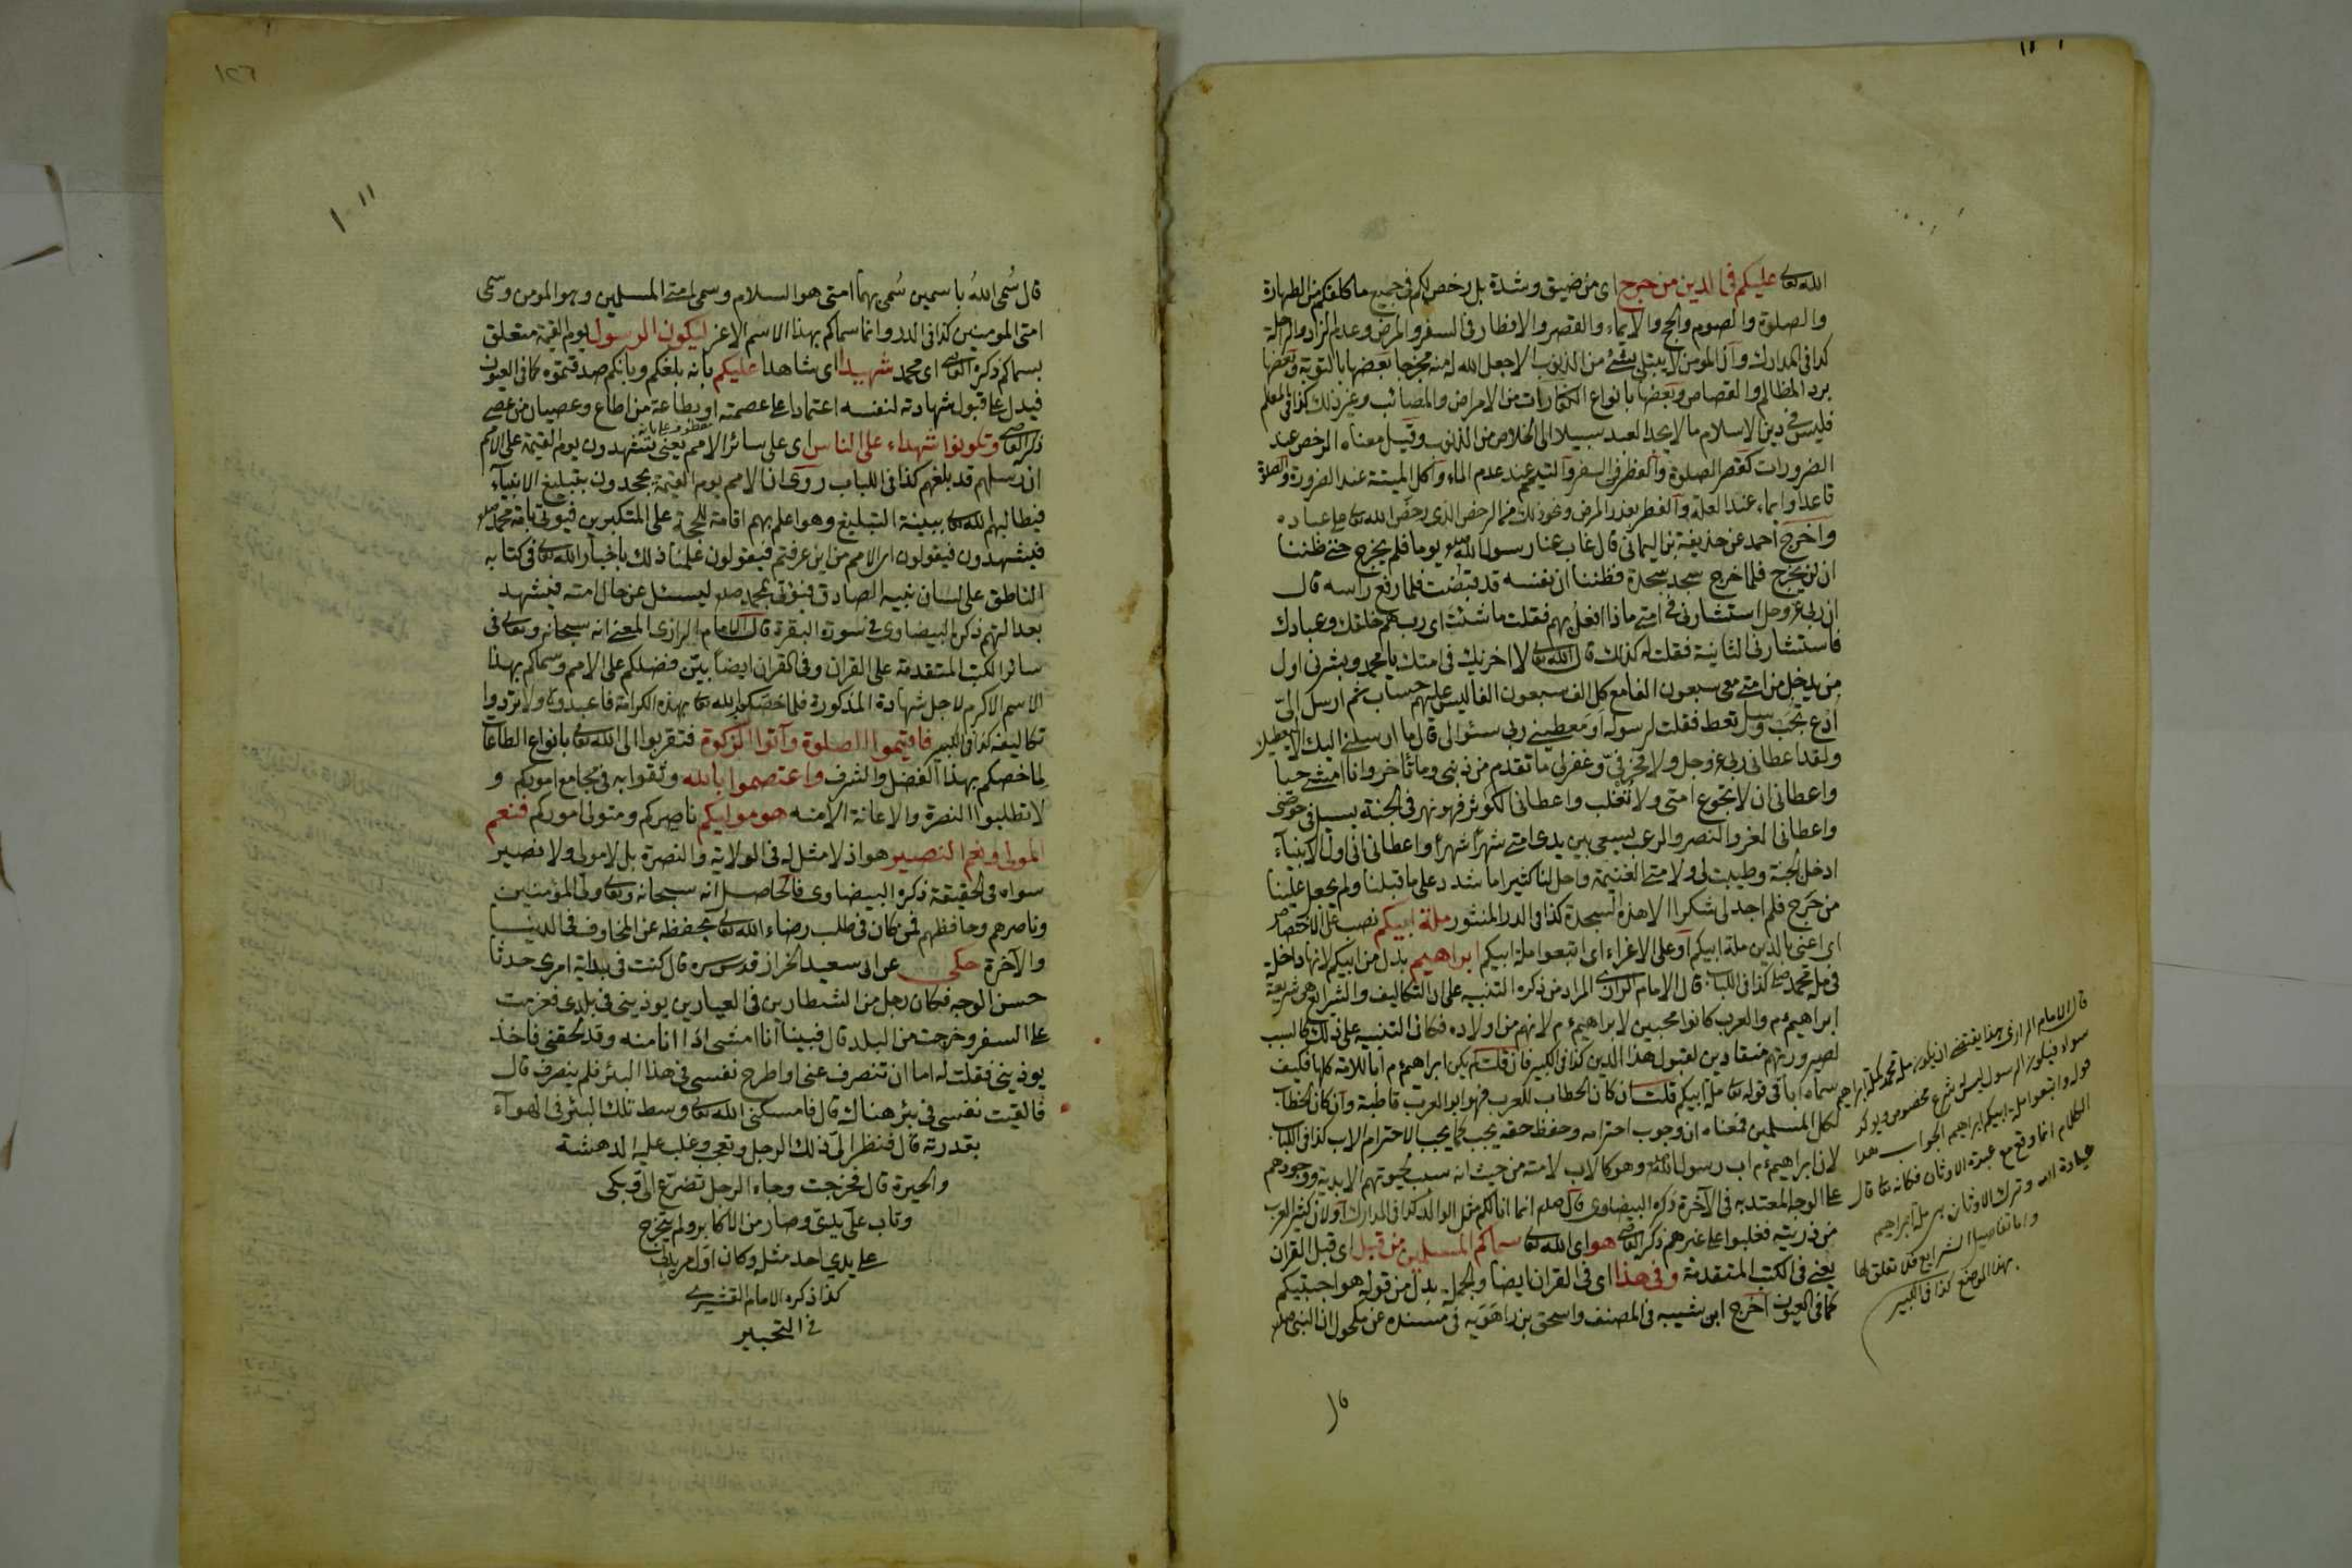 الله تعا عليكم فى الدين من حرج اى من ضيق وشدة بل رخص لكم فى جميع ما كلفكم من الطهارة
والصلوة والصوم والحج والايماء والقصر والافطار فى السفر والمرض وعدم الزاد والراحلة
كذا فى المدارك وان المومن لا يبتلى بشئ من الذنوب الا جعل الله له منه مخرجا بعضها بالتوبة وبعضها
برد المظالم والقصاص وبعضها بانواع الكفارات من الامراض والمصائب وغير ذلك كذا فى المعلم
فليس فى دين الاسلام ما لا يجد العبد سبيلا الى الخلاص من الذنوب وقيل معناه الرخص عند
الضرورات كقصر الصلوة والفطر فى السفر والتيمم عند عدم الماء واكل الميتة عند الضرورة والصلوة
قاعدا وايماء عند العلة والفطر بعذر المرض ونحو ذلك من الرخص الذى رخص الله تعا على عباده
واخرج احمد عن حذيفة بن اليمانى قال غاب عنا رسول الله صلعم يوما فلم يخرج حتى ظننا
ان لن يخرج فلما خرج سجد سجدة فظننا ان نفسه قد قبضت فلما رفع راسه قال
ان ربى عز وجل استشارنى فى امتى ماذا افعل بهم فقلت ما شئت اى رب هم خلقك وعبادك
فاستشارنى الثانية فقلت له كذلك قال الله تعا لا اخزيك فى امتك يا محمد وبشرنى اول
من يدخل من امتى معى سبعون الفا مع كل الف سبعون الفا ليس عليهم حساب ثم ارسل الىّ
ادع تجب وسل تعط فقلت لرسوله او معطينى ربى سئوالى قال ما ارسلنى اليك الا ليعطيك
ولقد اعطانى ربى عز وجل ولا فخر فىّ وغفر لى ما تقدم من ذنبى وما تأخر وانا امشى حيا
واعطانى ان لا تجوع امتى ولا تغلب واعطانى الكوثر فهو نهر فى الجنة يسيل فى حوضى
واعطانى العز والنصر والرعب يسعى بين يدى امتى شهرًا شهرًا واعطانى انى اول الانبياء
ادخل الجنة وطيبت لى ولامتى الغنيمة واحل لنا كثيرا مما شدد على ما قبلنا ولم يجعل علينا
من حرج فلم اجد لى شكرا الا هذه السجدة كذا فى الدر المنثور ملة ابيكم نصب على الاختصاص
اى اعنى بالدين ملة ابيكم او على الاغراء اى اتبعوا ملة ابيكم ابراهيم بدل من ابيكم لانها داخلة
فى ملة محمد صلعم كذا فى اللباب قال الامام الرازى المراد من ذكره التنبيه على ان التكاليف والشرايع هى شريعة
ابراهيم ءم والعرب كانوا محبين لابراهيم ءم لانهم من اولاده فكان التنبيه على ذلك كالسبب
لصيرورتهم منقادين لقبول هذا الدين كذا فى الكبير فان قلت لم يكن ابراهيم ءم ابا للامة كلها فكيف
سماه ابا فى قوله تعا ملة ابيكم قلت ان كان الخطاب للعرب فهو ابو العرب قاطبة وان كان الخطاب
لكل المسلمين فمعناه ان وجوب احترامه وحفظ حقه يجب كما يجب الاحترام الاب كذا فى اللباب
لان ابراهيم ءم اب رسول الله صلعم وهو كالاب لامته من حيث انه سبب لحيوتهم الابدية ووجودهم
على الوجه المعتد به فى الآخرة ذكره البيضاوى قال صلعم انما انا لكم مثل الوالد كذا فى المدارك او لان كثر العرب
من ذريته فغلبوا على غيرهم ذكره القاضى هو اى الله تعا سماكم المسلمين من قبل اى قبل القران
يعنى فى الكتب المتقدمة وفى هذا اى فى القران ايضا والجملة بدل من قوله هو اجتبيكم
كما فى العيون اخرج ابن شيبه فى المصنف واسحق بن راهويه فى مسنده عن مكحول ان النبى صلعم
قال الامام الرازى هذا يقتضى ان يكون ملة محمد كملة ابراهيم
سواء فيكون الرسول ليس له شرع مخصوص ويؤكد
قوله واتبعوا ملة ابيكم ابراهيم الجواب هذا
الكلام انما وقع مع عبدة الاوثان فكانه تعا قال
عبادة الله وترك الاوثان هى ملة ابراهيم
واما تفاصيل الشرايع فلا تعلق لها
بهذا الموضع كذا فى الكبير
قال سُمى اللهُ باسمين سُمى بهما امتى هو السلام وسمى امتى المسلمين وهو المومن وسمى
امتى المومنين كذا فى الدر وانما سماكم بهذا الاسم الاعز ليكون الرسول يوم القيمة متعلق
بسماكم ذكره القاضى اى محمد شهيدا اى شاهدا عليكم بانه بلغكم وبانكم صدقتموه كما فى العيون
فيدل على قبول شهادته لنفسه اعتمادا على عصمته او بطاعة من اطاع وعصيان من عصى
ذكره القاضى وتكونوا شهداء على الناس اى على سائر الامم يعنى تشهدون يوم القيمة على الامم
ان رسلهم قد بلغهم كذا فى اللباب روى ان الامم يوم القيمة يجحدون بتبليغ الانبياء
فيطالبهم الله تعا ببينة التبليغ وهو اعلم بهم اقامة للحجة على المتكبرين فيؤتى بامة محمد صلعم
فيشهدون فيقولون اى الامم من اين عرفتم فيقولون علمنا ذلك باخبار الله تعا فى كتابه
الناطق على لسان نبيه الصادق فيؤتى بمحمد صلعم ليسئل عن حال امته فيشهد
بعدالتهم ذكره البيضاوى فى سورة البقرة قال الامام الرازى المعنى انه سبحانه وتعا فى
سائر الكتب المتقدمة على القران وفى القران ايضاً بيّن فضلكم على الامم وسماكم بهذا
الاسم الاكرم لاجل شهادة المذكورة فلما خصّكم الله تعا بهذه الكرامة فاعبدوه ولا تردوا
تكاليفه كذا فى الكبير فاقيموا الصلوة وآتوا الزكوة فتقربوا الى الله تعا بانواع الطاعات
لما خصكم بهذا الفضل والشرف واعتصموا بالله وثقوا به فى مجامع اموركم و
لا تطلبوا النصرة والاعانة الا منه هو موليكم ناصركم ومتولى اموركم فنعم
المولى ونعم النصير هو اذ لا مثل له فى الولاية والنصرة بل لا مولى ولا نصير
سواه فى الحقيقة ذكره البيضاوى فالحاصل انه سبحانه وتعا ولى المؤمنين
وناصرهم وحافظهم فمن كان فى طلب رضاء الله تعا يحفظه عن المخاوف فى الدنيا
والآخرة حكى عن ابى سعيد الخراز قدس سره قال كنت فى بداية امرى حدثا
حسن الوجه فكان رجل من الشطارين فى العيارين يوذينى فى بلدى فعزمت
على السفر وخرجت من البلد قال فبينا انا امشى اذا انا منه وقد لحقنى فاخذ
يوذينى فقلت له اما ان تنصرف عنى او اطرح نفسى فى هذا البئر فلم ينصرف قال
فالقيت نفسى فى بئر هناك قال فامسكنى الله تعا وسط تلك البئر فى الهوآء
بقدرته قال فنظر الىّ ذلك الرجل وتعجب وغلب عليه الدهشة
والحيرة قال فخرجت وجاء الرجل تضرّع الىّ وبكى
وتاب على يدىّ وصار من الاكابر ولم يتخرج
على يدي احد مثله وكان اول مريدى
كذا ذكره الامام القشيرى
فى التحبير